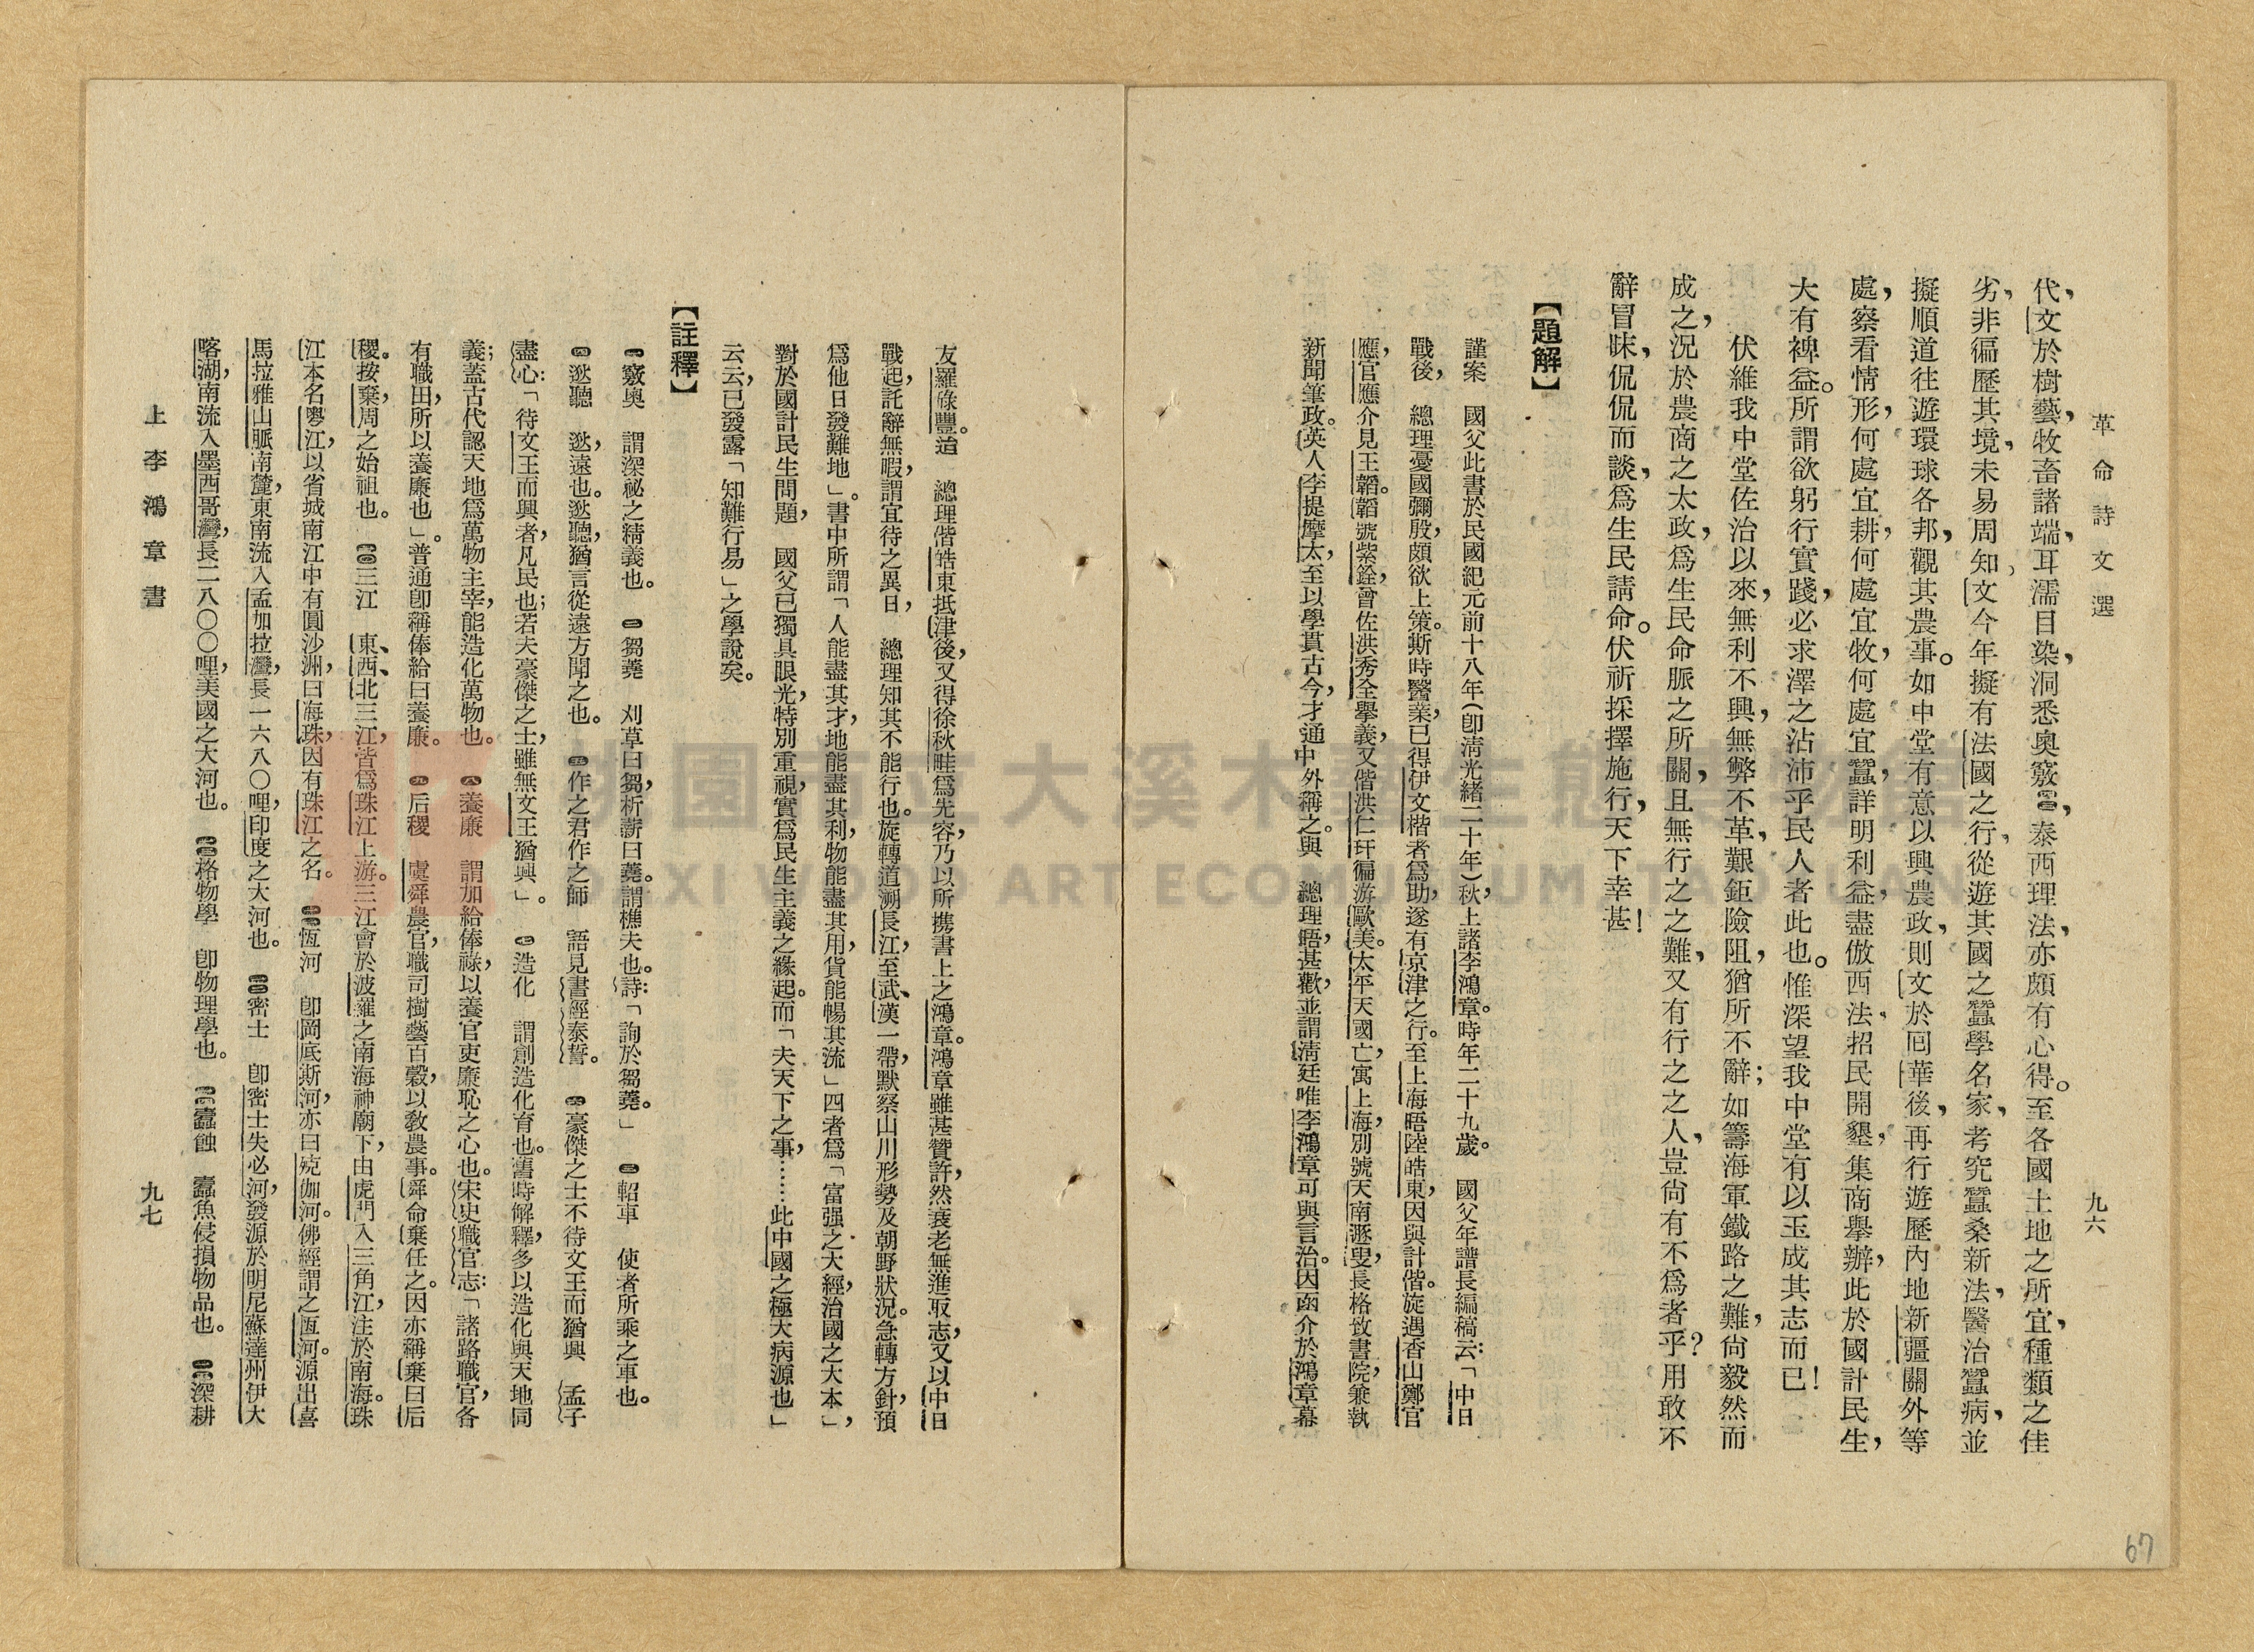 革命詩文選
九六
代，文於樹藝，牧畜諸端，耳濡目染，洞悉奧竅，泰西理法，亦頗有心得。至各國土地之所宜，種類之佳
劣，非徧歷其境，未易周知，文今年擬有法國之行，從遊其國之蠶學名家，考究蠶桑新法，醫治蠶病，並
擬順道往遊環球各邦，觀其農事。如中堂有意以興農政，則文於囘華後，再行遊歷內地新疆關外等
處，察看情形，何處宜耕，何處宜牧，何處宜蠶，詳明利益，盡倣西法，招民開墾，集商舉辦，此於國計民生，
大有裨益。所謂欲躬行實踐，必求澤之沾沛乎民人者此也。惟深望我中堂有以玉成其志而已！
伏維我中堂佐治以來，無利不興，無弊不革，艱鉅險阻，猶所不辭；如籌海軍鐵路之難，尙毅然而
成之，況於農商之太政，爲生民命脈之所關，且無行之之難，又有行之之人，豈尙有不爲者乎？用敢不
辭冒昧，侃侃而談，爲生民請命。伏祈採擇施行，天下幸甚！
【題解】
謹案　國父此書於民國紀元前十八年（卽清光緒二十年）秋，上諸李鴻章。時年二十九歲。　國父年譜長編稿云：「中日
戰後，　總理憂國彌殷，頗欲上策。斯時醫業，已得伊文楷者爲助，遂有京津之行。至上海晤陸皓東，因與計偕。旋遇香山鄭官
應，官應介見王韜。韜號紫銓，曾佐洪秀全舉義，又偕洪仁玕徧游歐美。太平天國亡，寓上海，別號天南遯叟，長格致書院，兼執
新聞筆政。英人李提摩太，至以學貫古今，才通中外稱之。與　總理晤，甚歡，並謂清廷唯李鴻章可與言治。因函介於鴻章幕
友羅祿豐。迨　總理偕皓東抵津後，又得徐秋畦爲先容，乃以所携書上之鴻章。鴻章雖甚贊許，然衰老無進取志，又以中日
戰起，託辭無暇，謂宜待之異日，　總理知其不能行也。旋轉道溯長江，至武、漢一帶，默察山川形勢及朝野狀況。急轉方針，預
爲他日發難地」。書中所謂「人能盡其才，地能盡其利，物能盡其用，貨能暢其流」四者爲「富强之大經，治國之大本」，
對於國計民生問題，　國父已獨具眼光，特別重視，實爲民生主義之緣起。而「夫天下之事，……此中國之極大病源也」
云云，已發露「知難行易」之學說矣。
【註釋】
㊀竅奧　謂深祕之精義也。　㊁芻蕘　刈草曰芻，析薪曰蕘。謂樵夫也。詩：「詢於芻蕘。」　㊂軺車　使者所乘之車也。
㊃逖聽　逖，遠也。逖聽，猶言從遠方聞之也。　㊄作之君作之師　語見書經泰誓。　㊅豪傑之士不待文王而猶興　孟子
盡心：「待文王而興者，凡民也；若夫豪傑之士，雖無文王猶興」。　㊆造化　謂創造化育也。舊時解釋，多以造化與天地同
義；蓋古代認天地爲萬物主宰，能造化萬物也。　㊇養廉　謂加給俸祿，以養官吏廉恥之心也。宋史職官志：「諸路職官，各
有職田，所以養廉也」。普通卽稱俸給曰養廉。　㊈后稷　虞舜農官，職司樹藝百穀，以敎農事。舜命棄任之。因亦稱棄曰后
稷。按棄，周之始祖也。　三江　東、西、北三江，皆爲珠江上游。三江會於波羅之南海神廟下，由虎門入三角江，注於南海。珠
江本名粵江，以省城南江中有圓沙洲，曰海珠，因有珠江之名。　恆河　卽岡底斯河，亦曰殑伽河。佛經謂之恆河。源出喜
馬拉雅山脈南麓，東南流入孟加拉灣，長一六八〇哩，印度之大河也。　密士　卽密士失必河，發源於明尼蘇達州伊大
喀湖，南流入墨西哥灣，長二八〇〇哩，美國之大河也。　格物學　卽物理學也。　蠹蝕　蠹魚侵損物品也。　深耕
上李鴻章書
九七
67
桃園市立大溪木藝生態博物館
DAXI WOOD ART ECOMUSEUM, TAOYUAN